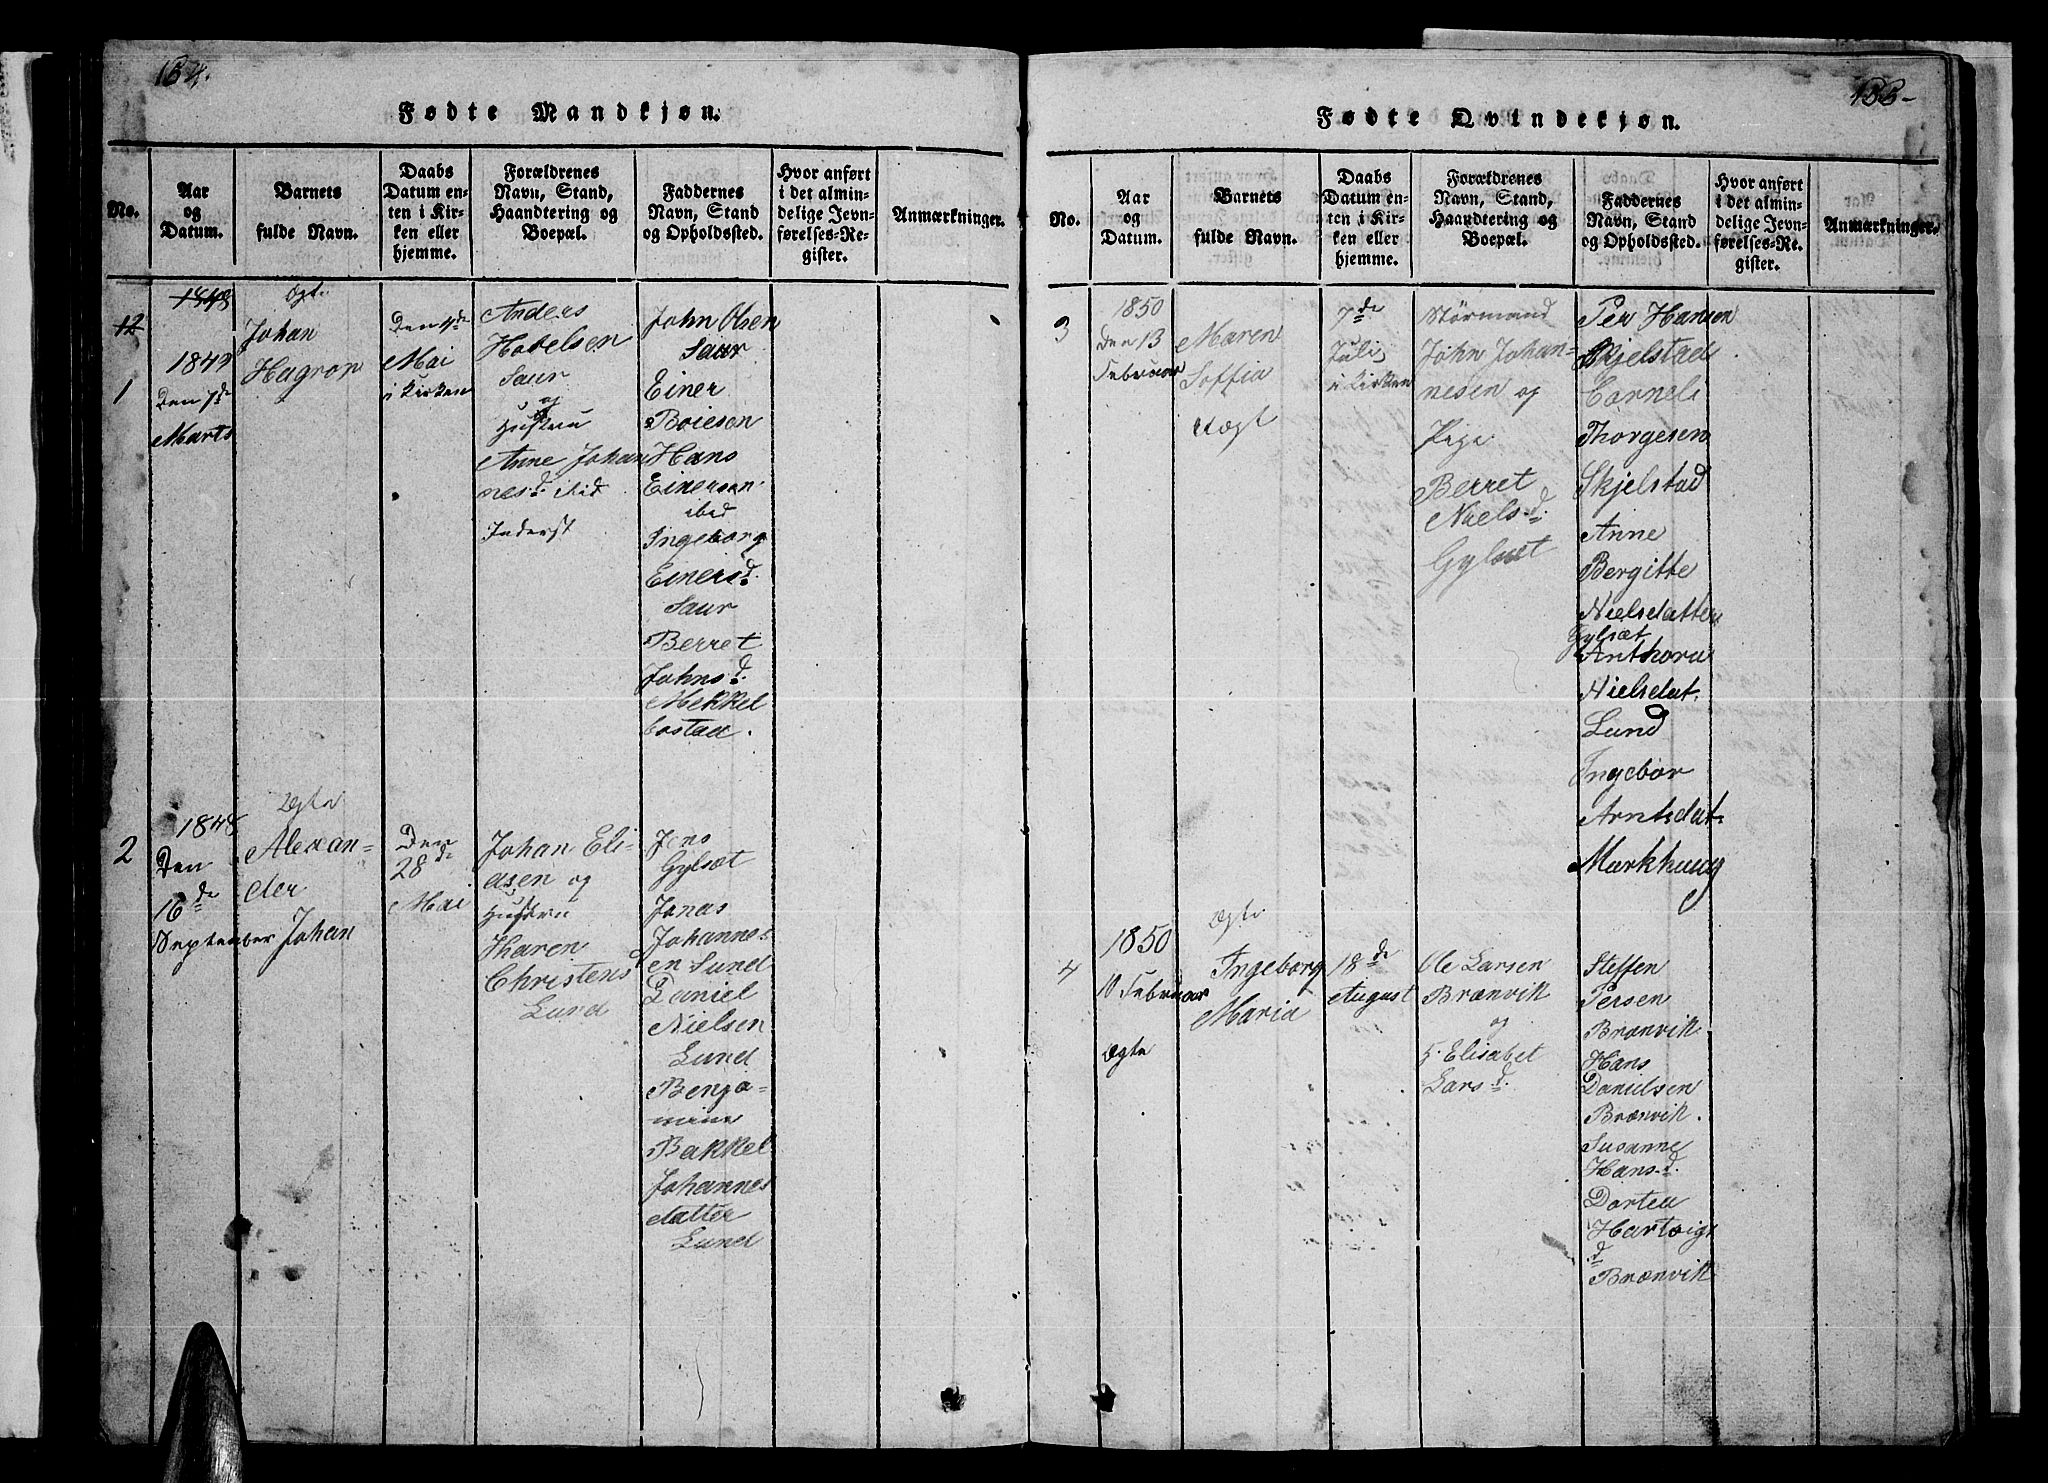 154.
Fødte Mandkjøn.
No.
Aar
og
Datum.
Barnets
fulde Navn.
Daabs
Datum en-
ten i Kir-
ken eller
hjemme.
Forældrenes
Navn, Stand,
Haandtering og
Boepæl.
Faddernes
Navn, Stand
og Opholdssted.
Hvor anført
i det almin-
delige Jevn-
førelses-Re-
gister.
Anmærkninger.
12
1848
1
1849
Den 7de
Marts
Ægt.
Johan
Hagrop
Mai
i Kirken
Anders
Havelsen
Saur
og
Hustru
Anne Johan
nesd. ibid
Inderst
John Olsen
Saur
Einer
Boiesen
Hans
Einersen
ibid
Ingeborg
Einersd.
Saur
Berret
Johnsd.
Mekkel
bostad.
2
1848
Den
16de
September
Ægte
Alexan-
der
Johan
Den
28de
Mai
Johan Eli-
asen og
Hustru
Karen
Christensd
Lund
Jens
Gylset
Jonas
Johannes-
en Lund
Daniel
Nielsen
Lund
Benja-
mine
Bakkel
Johannes
datter
Lund
155-
Fødte Qvindekjøn.
No.
Aar
og
Datum.
Barnets
fulde Navn.
Daabs
Datum en-
ten i Kir-
ken eller
hjemme.
Forældrenes
Navn, Stand,
Haandtering og
Boepæl.
Faddernes
Navn, Stand
og Opholdssted.
Hvor anført
i det almin-
delige Jevn-
førelses-Re-
gister.
Anmærkninger.
3
1850
Den 13
Februar
Maren
Soffia
Uægt
7de
Juli
i Kirken
Størmand
John Johan-
nesen og
Pige
Berret
Nielsd.
Gylset
Per Hansen
Skjelstad
Cornels
Thorgesen
Skjelstad
Anne
Bergitte
Nielsdatter
Gylsæt
Anthora
Nielsdat.
Lund
Ingebor
Arntsdat.
Markhaug
4
1850
10 Februar
Ægte
Ægte
Ingeborg
Maria
18de
August
Ole Larsen
Brænvik
og
H. Elisabet
Larsd.
Steffen
Persen
Brænvik
Hans
Danielsen
Brænvik.
Susanne
Hans-d.
Dortea
Hartvigs
d
Brænvik